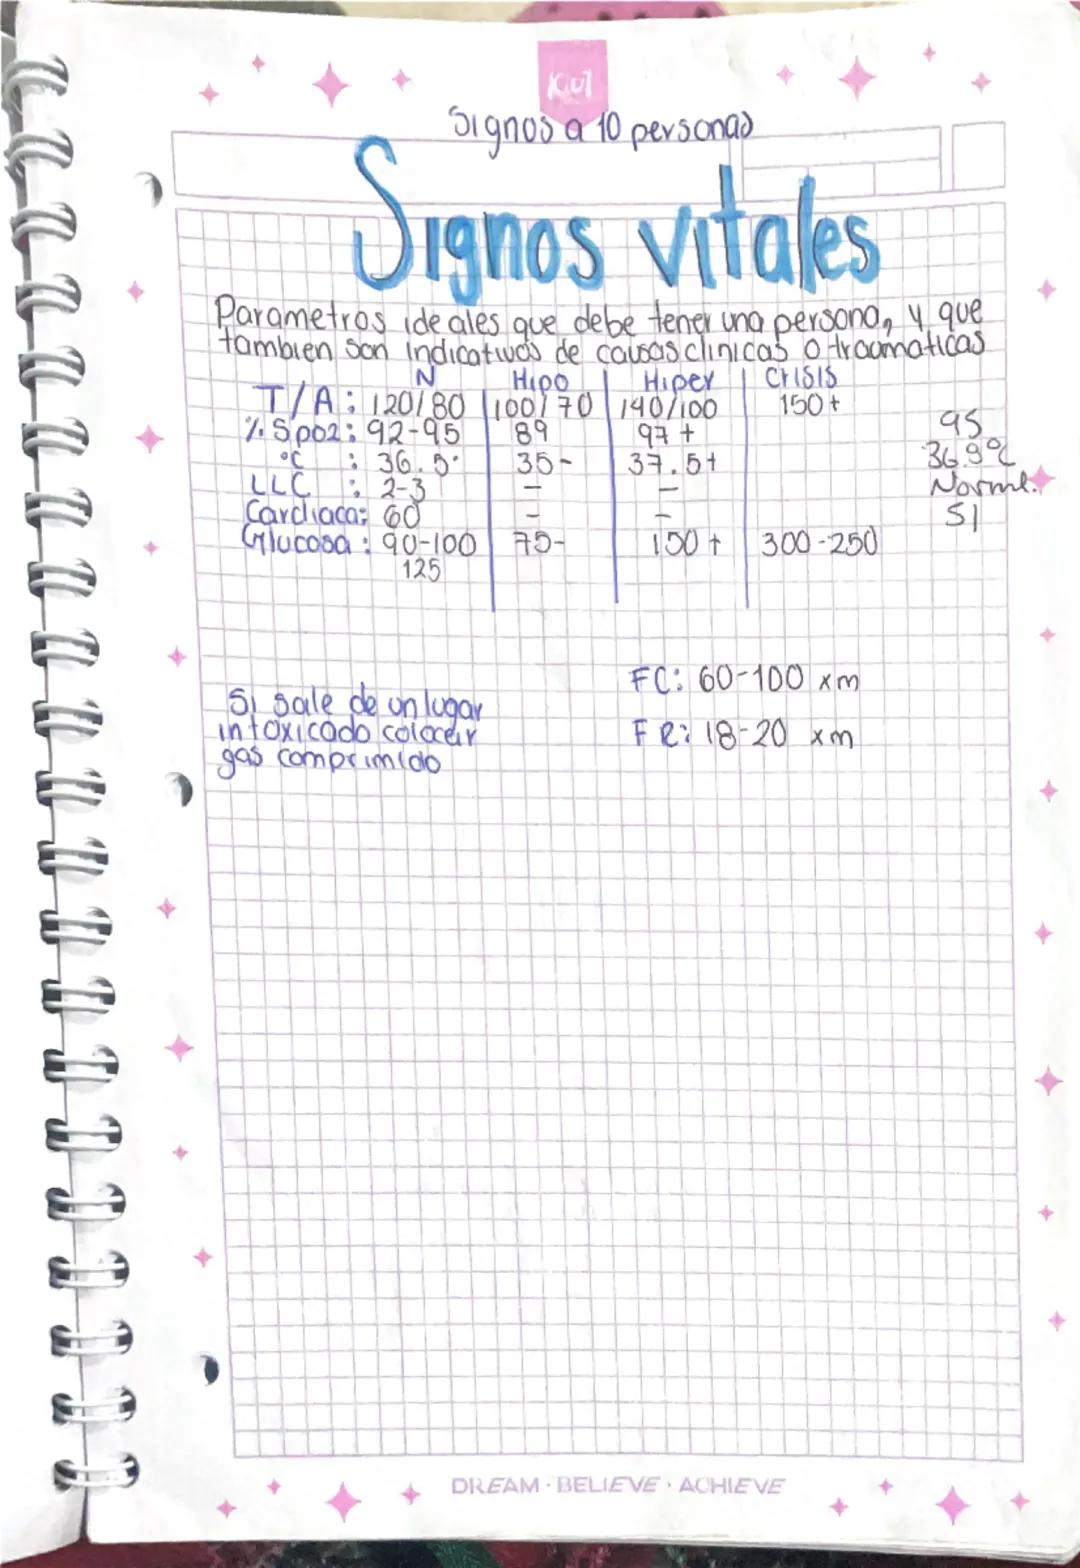 Kut
Signos a 10 personas
Signos vitales
Parametros ideales que debe tener una persona, y que
tambien son indicativos de causas clinicas o traomaticas
N Hipo Hiper Crisis
T/A: 120/80 100/70 140/100 150+
%Spo2: 92-95 89 97+ 95
°C : 36.5° 35- 37.5+ 36.9°C
LLC : 2-3 - - Normal
Cardiaca: 60 - - 51
Glucosa: 90-100 75- 150+ 300-250
125
FC: 60-100 xm
Si sale de un lugar
intoxicado colocar
FR: 18-20 xm
gas comprimido
DREAM · BELIEVE · ACHIEVE